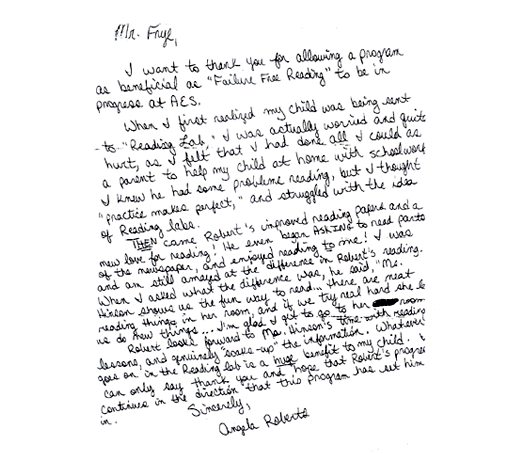 Mr. Frye,
I want to thank you for allowing a program
as beneficial as "Failure Free Reading" to be in
progress at AES.
When I first realized my child was being sent
to "Reading Lab," I was actually worried and quite
hurt, as I felt that I had done all I could as
a parent to help my child at home with schoolwork
I knew he had some problems reading, but I thought
"practice makes perfect," and struggled with the idea
of Reading labs.
THEN came Robert's improved reading papers and a
new love for reading! He even began ASKING to read parts
of the newspaper, and enjoyed reading to me! I was
and am still amazed at the difference in Robert's reading.
When I asked what the difference was, he said, "Ms.
Hinson shows us the fun way to read... there are neat
reading things in her room, and if we try real hard she le
us do new things... I'm glad I get to go to her room
Robert looks forward to Ms. Hinson's time with reading
lessons, and genuinely "soaks-up" the information. Whatever
goes on in the Reading lab is a huge benefit to my child. I
can only say thank you and hope that Robert's progres
continues in the direction that this program has set him
in.
Sincerely,
Angela Roberts